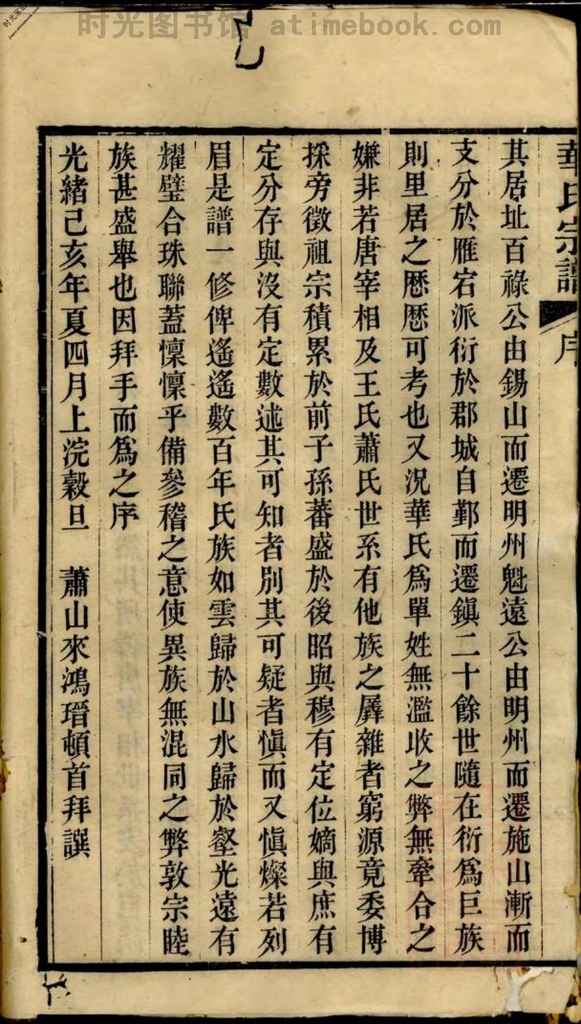 时光图书馆 atimebook.com
華氏宗譜
序
其居址百祿公由錫山而遷明州魁遠公由明州而遷施山漸而
支分於雁宕派衍於郡城自鄞而遷鎮二十餘世隨在衍為巨族
則里居之歷歷可考也又況華氏為單姓無濫收之弊無牽合之
嫌非若唐宰相及王氏蕭氏世系有他族之羼雜者窮源竟委博
採旁徵祖宗積累於前子孫蕃盛於後昭與穆有定位嫡與庶有
定分存與沒有定數述其可知者別其可疑者慎而又慎燦若列
眉是譜一修俾遙遙數百年氏族如雲歸於山水歸於壑光遠有
耀璧合珠聯蓋懍懍乎備參稽之意使異族無混同之弊敦宗睦
族甚盛舉也因拜手而為之序
光緒己亥年夏四月上浣穀旦 蕭山來鴻瑨頓首拜譔